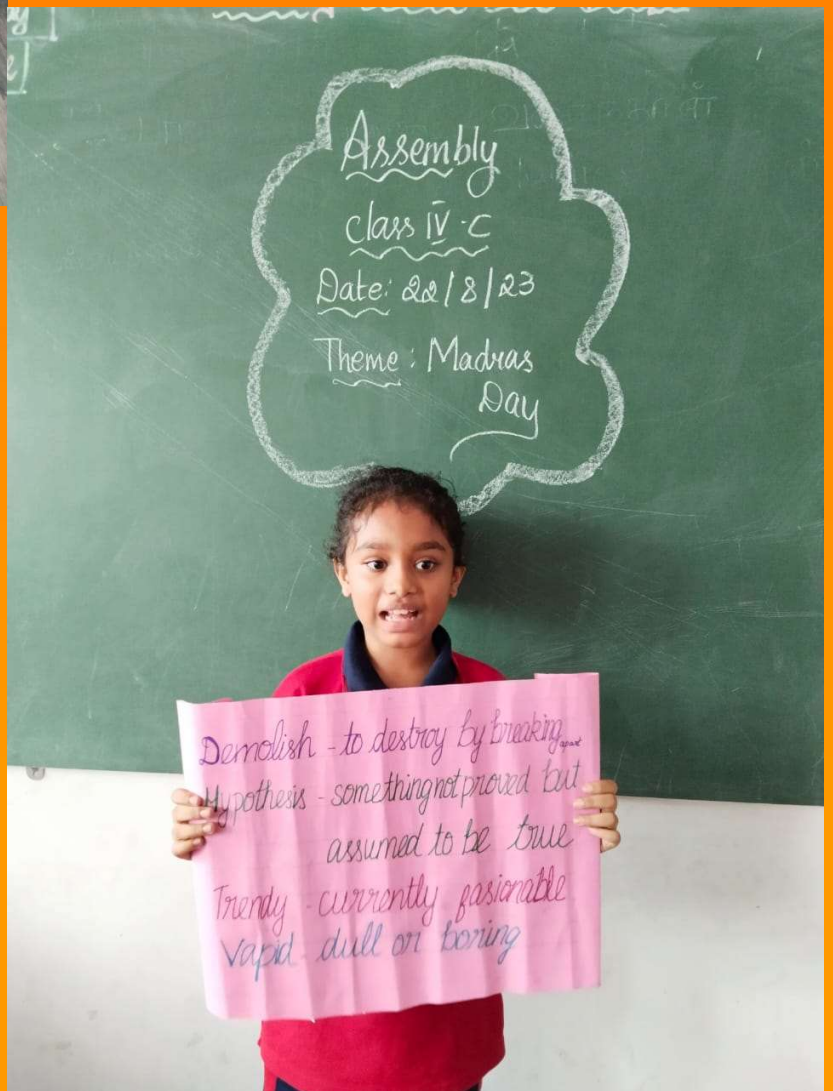 Assembly
Class IV-C
Date: 22/8/23
Theme: Madras
Day
Demolish - to destroy by breaking apart
Hypothesis - something not proved but
assumed to be true
Trendy - currently fasionable
Vapid - dull or boring